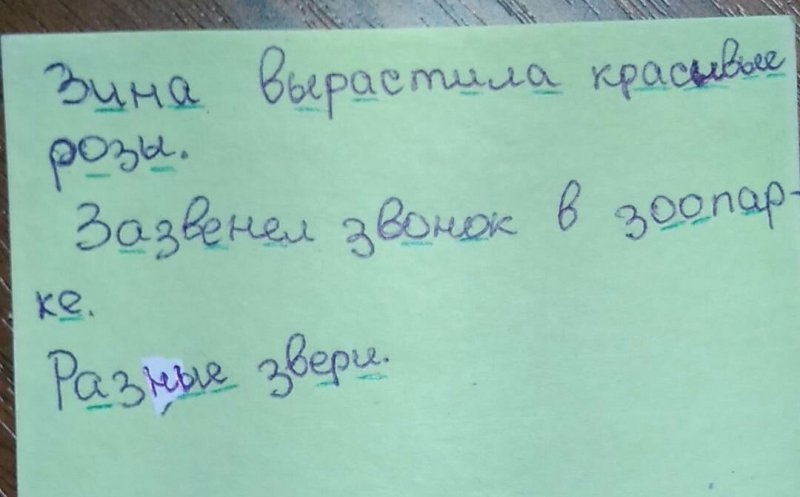 Зина вырастила красивые
розы.
Зазвенел звонок в зоопар-
ке.
Разные звери.